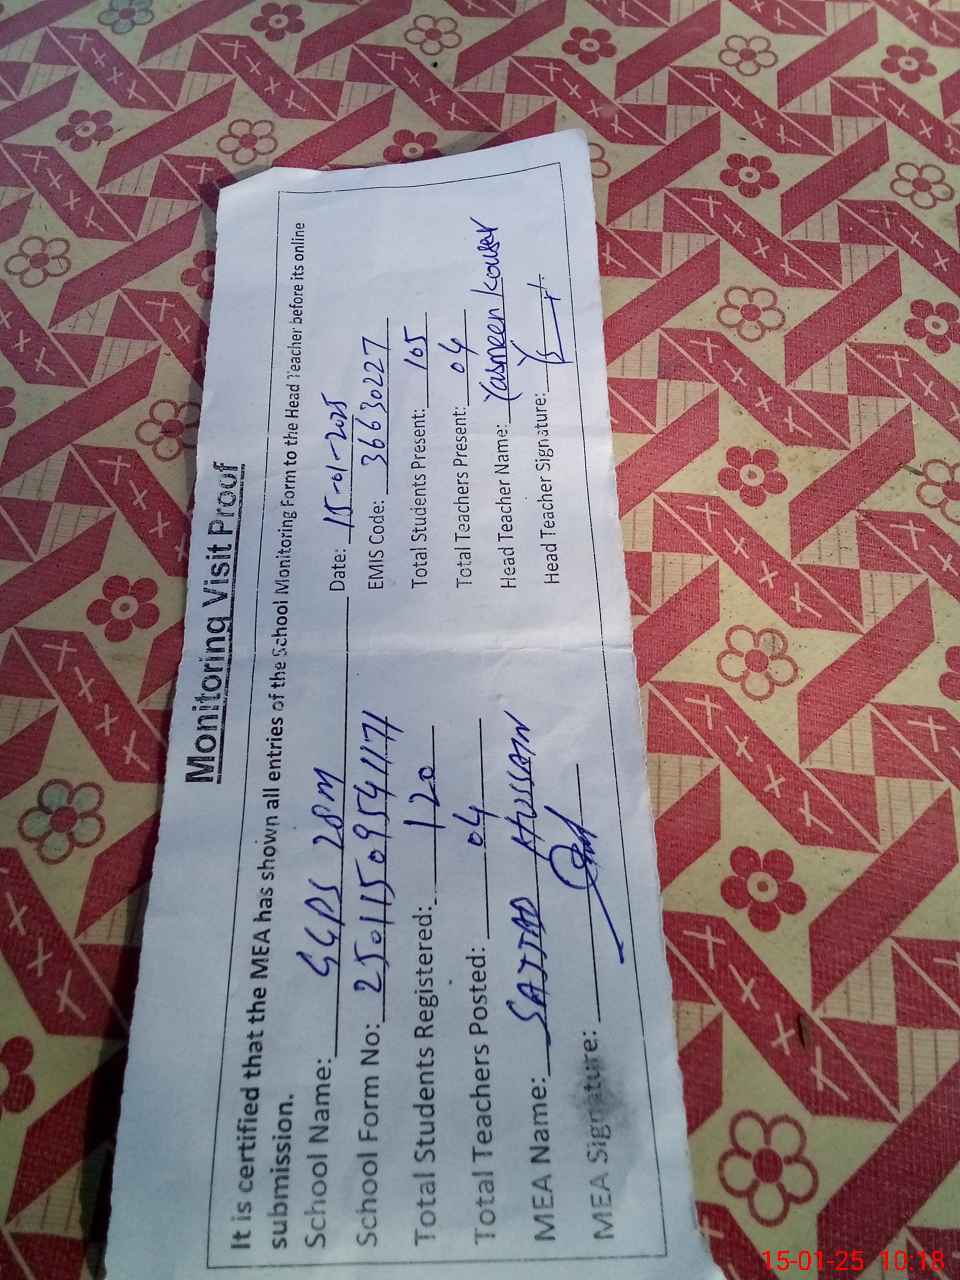 Monitoring Visit Proof
It is certified that the MEA has shown all entries of the School Monitoring Form to the Head Teacher before its online
submission.
School Name: GGPS 28M Date: 15-01-2025
School Form No: 25011509541171 EMIS Code: 36630227
Total Students Registered: 120 Total Students Present: 105
Total Teachers Posted: 04 Total Teachers Present: 04
MEA Name: SAJJAD HUSSAIN Head Teacher Name: Yasmeen Kousar
MEA Signature: Head Teacher Signature:
15-01-25 10:18